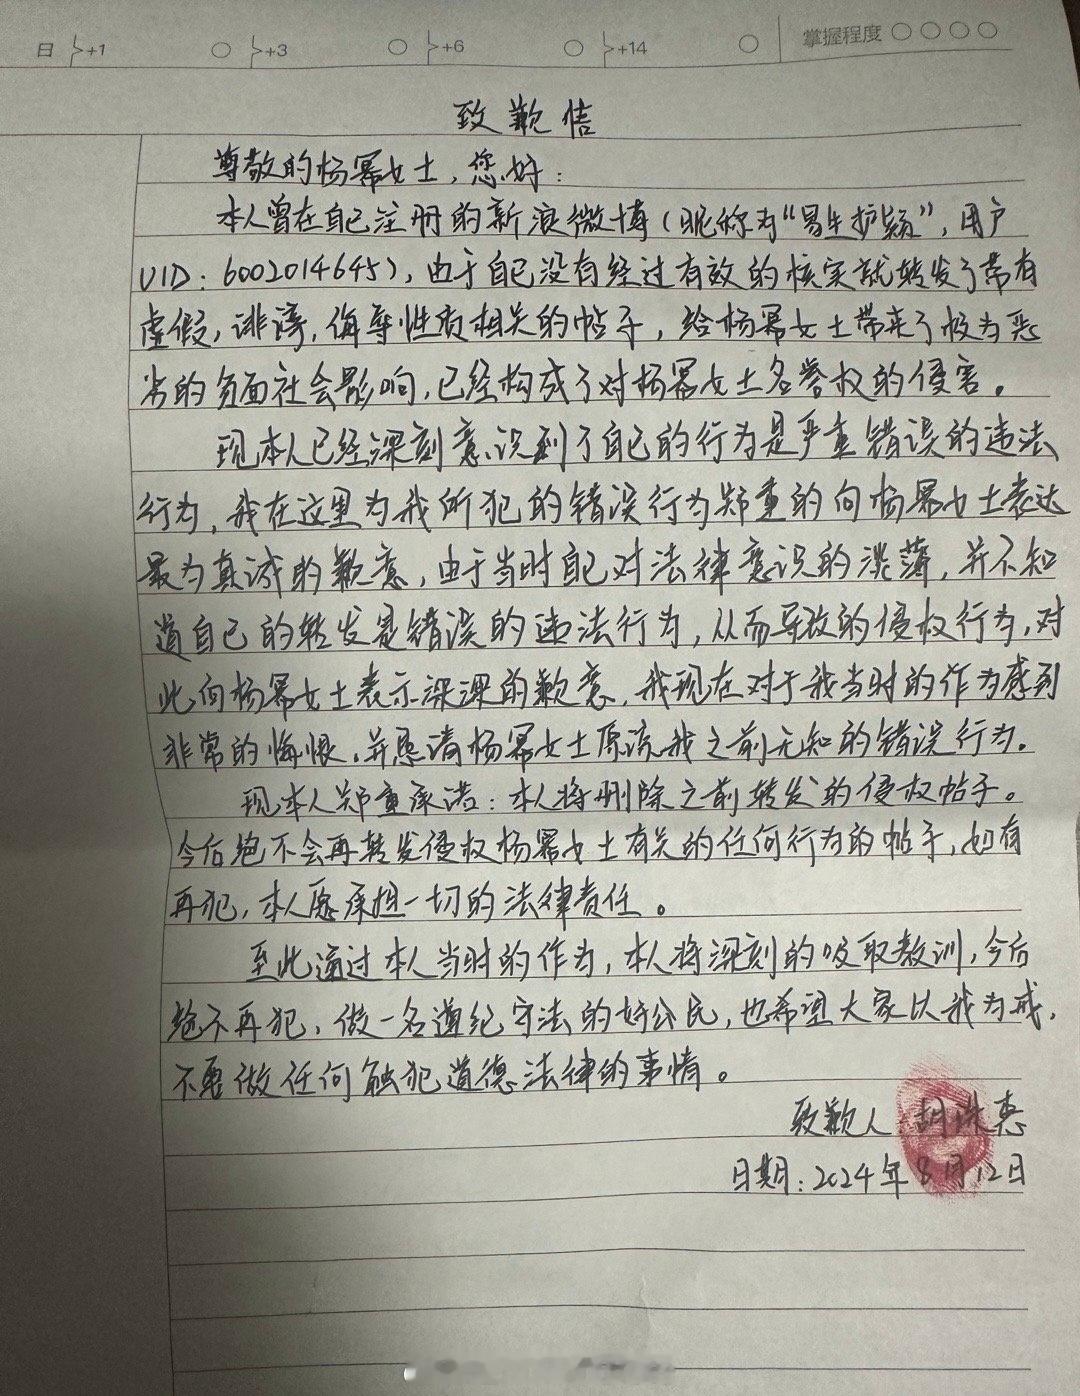 日 +1 +3 +6 +14 掌握程度
致歉信
尊敬的杨幂女士，您好：
本人曾在自己注册的新浪微博（昵称为“易生护颖”，用户
UID：6002014645），由于自己没有经过有效的核实就转发了带有
虚假，诽谤，侮辱性质相关的帖子，给杨幂女士带来了极为恶
劣的负面社会影响，已经构成了对杨幂女士名誉权的侵害。
现本人已经深刻意识到了自己的行为是严重错误的违法
行为，我在这里为我所犯的错误行为郑重的向杨幂女士表达
最为真诚的歉意，由于当时自己对法律意识的淡薄，并不知
道自己的转发是错误的违法行为，从而导致的侵权行为，对
此向杨幂女士表示深深的歉意，我现在对于我当时的作为感到
非常的悔恨，并恳请杨幂女士原谅我之前无知的错误行为。
现本人郑重承诺：本人将删除之前转发的侵权帖子。
今后绝不会再转发侵权杨幂女士有关的任何行为的帖子，如有
再犯，本人愿承担一切的法律责任。
至此通过本人当时的作为，本人将深刻的吸取教训，今后
绝不再犯，做一名遵纪守法的好公民，也希望大家以我为戒，
不要做任何触犯道德法律的事情。
致歉人 胡 惠
日期：2024年8月12日